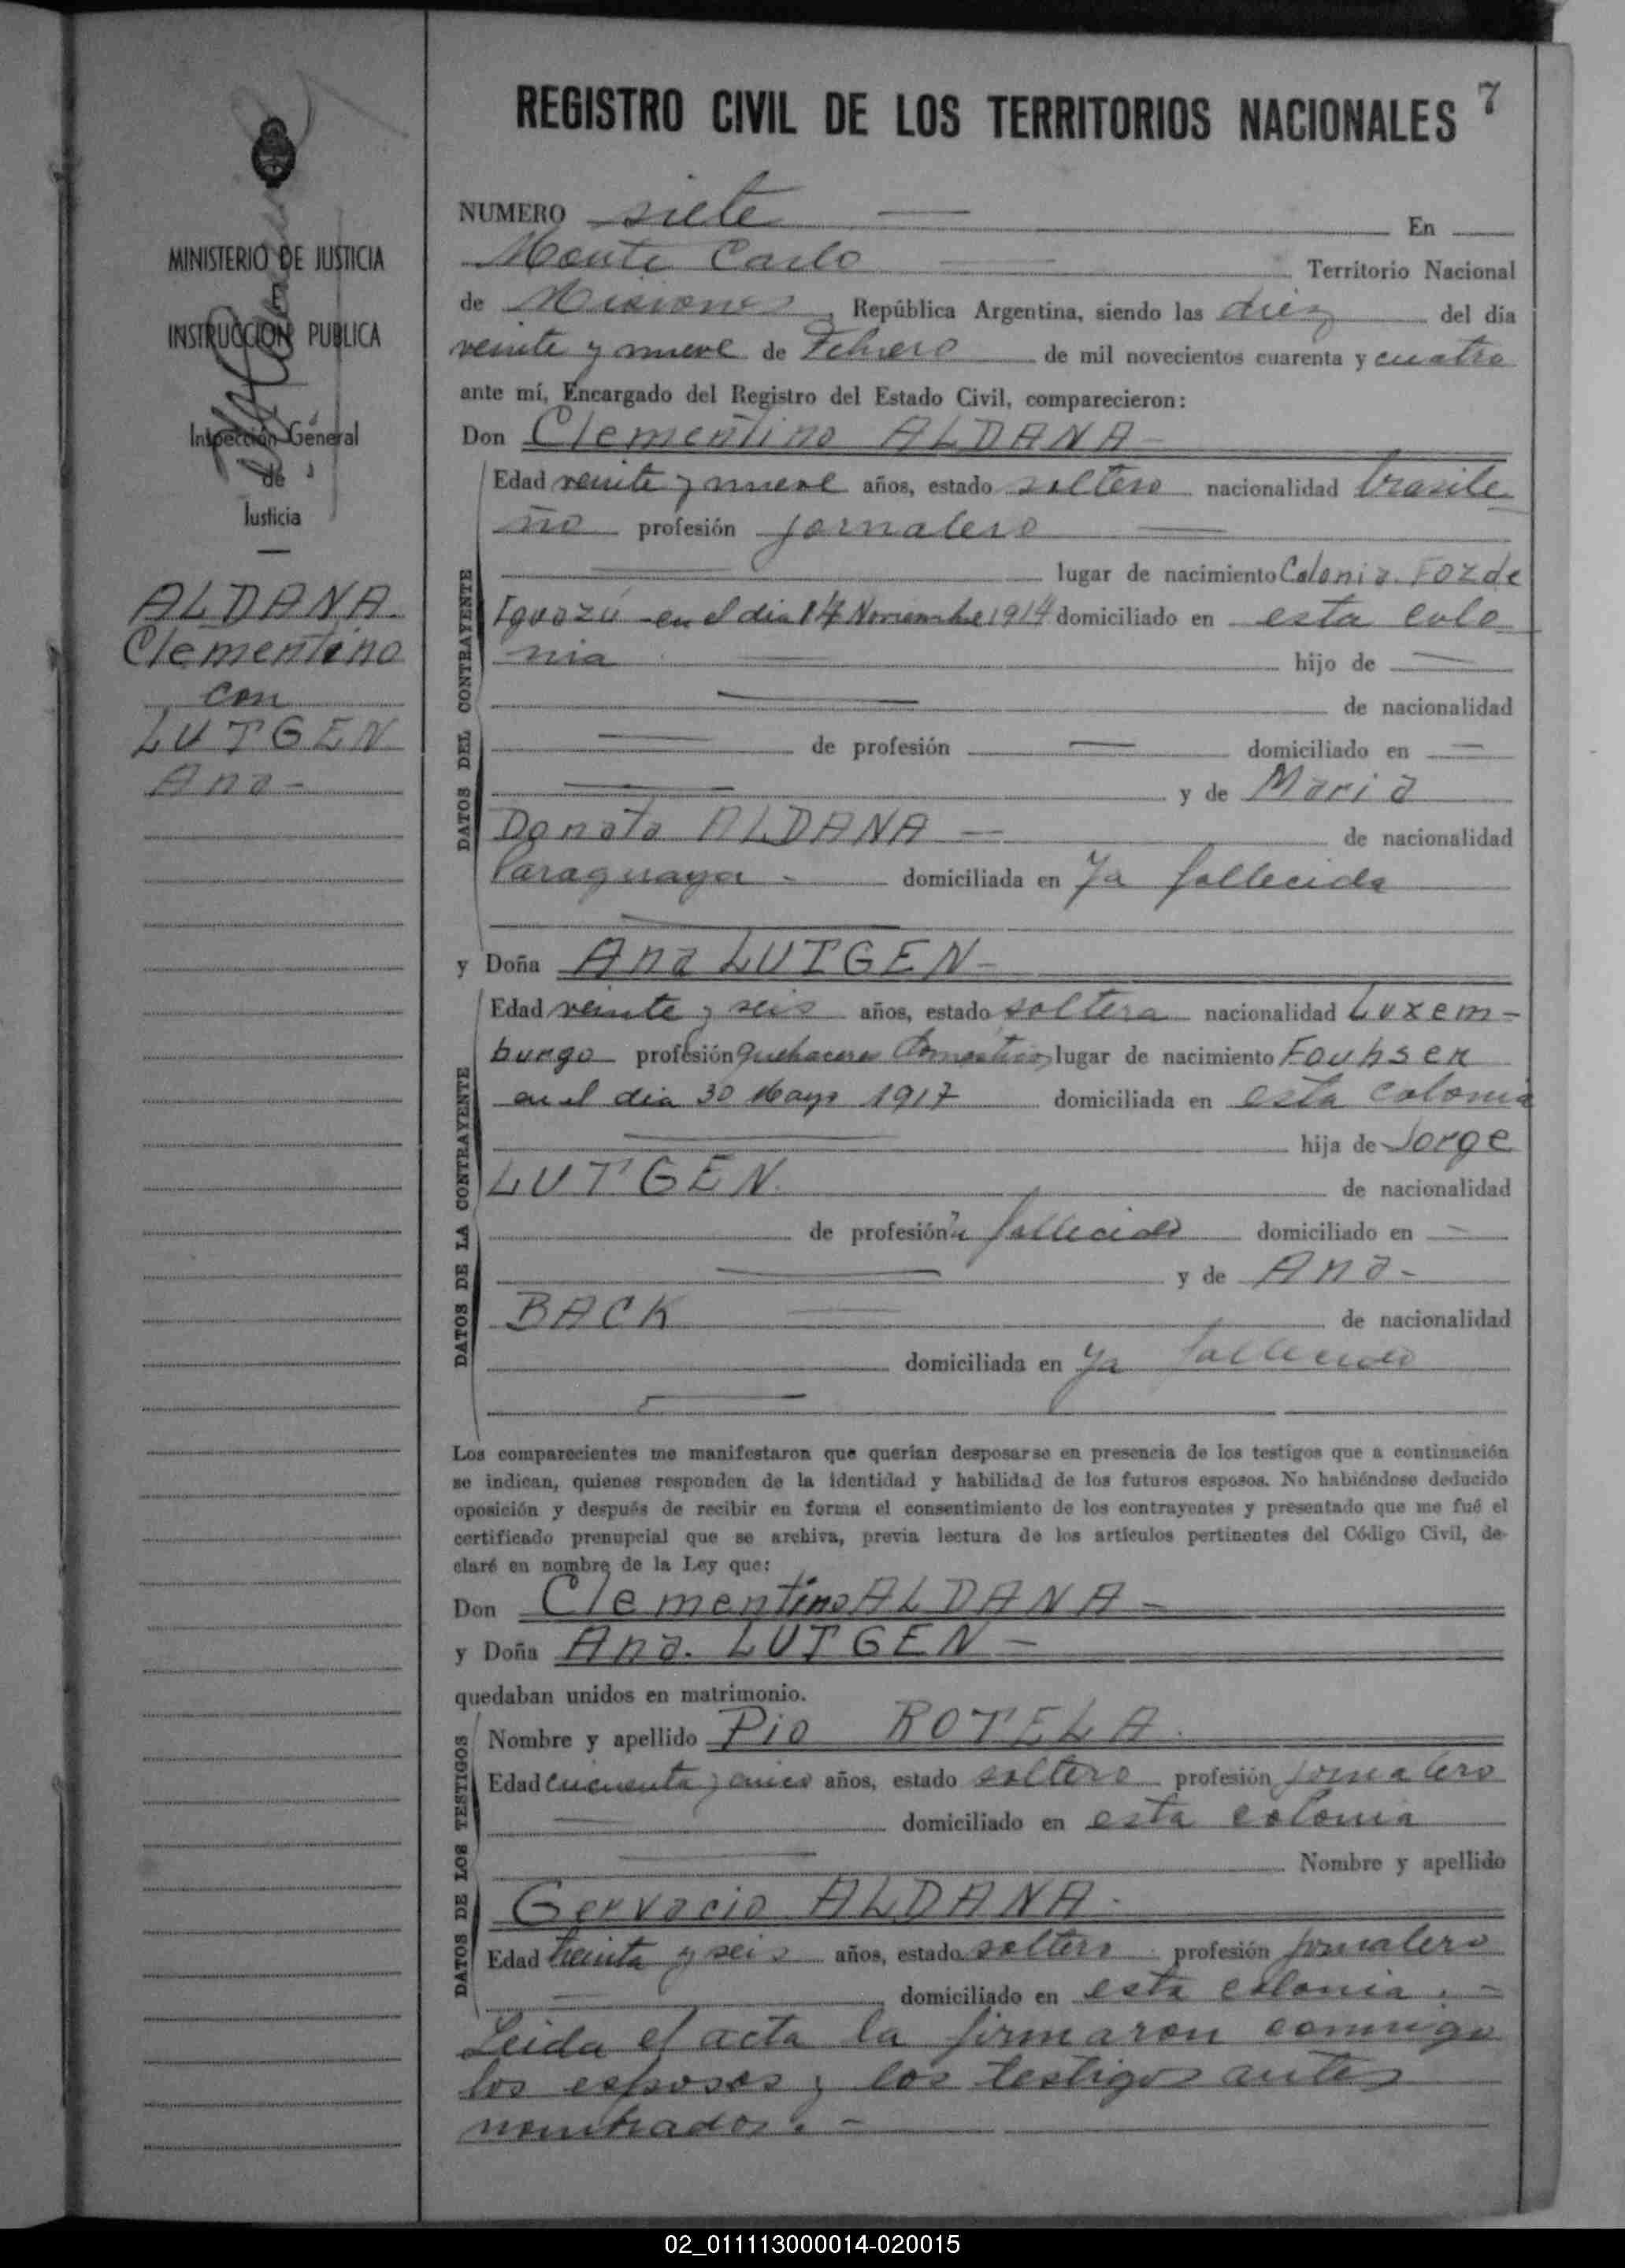 REGISTRO CIVIL DE LOS TERRITORIOS NACIONALES 7
MINISTERIO DE JUSTICIA
INSTRUCCION PUBLICA
Inspección General
de
Justicia
ALDANA
Clementino
con
LUTGEN
Ana -
NUMERO siete En
Monte Carlo Territorio Nacional
de Misiones, República Argentina, siendo las diez del día
veinte y nueve de Febrero de mil novecientos cuarenta y cuatro
ante mí, Encargado del Registro del Estado Civil, comparecieron:
Don Clementino ALDANA -
DATOS DEL CONTRAYENTE
Edad veinte y nueve años, estado soltero nacionalidad brasile
ño profesión jornalero
lugar de nacimiento Colonia Foz de
Iguazú en el dia 14 Noviembre 1914 domiciliado en esta colo
nia hijo de
de nacionalidad
de profesión domiciliado en
y de Maria
Donata ALDANA - de nacionalidad
Paraguaya - domiciliada en Ya fallecida
y Doña Ana LUTGEN -
DATOS DE LA CONTRAYENTE
Edad veinte y seis años, estado soltera nacionalidad Luxem-
burgo profesión Quehaceres Domesticos lugar de nacimiento Fouhsen
en el dia 30 Mayo 1917 domiciliada en esta colonia
hija de Jorge
LUTGEN. de nacionalidad
de profesión fallecido domiciliado en -
y de Ana -
BACK de nacionalidad
domiciliada en Ya
Los comparecientes me manifestaron que querían desposarse en presencia de los testigos que a continuación
se indican, quienes responden de la identidad y habilidad de los futuros esposos. No habiéndose deducido
oposición y después de recibir en forma el consentimiento de los contrayentes y presentado que me fué el
certificado prenupcial que se archiva, previa lectura de los artículos pertinentes del Código Civil, de-
claré en nombre de la Ley que:
Don Clementino ALDANA -
y Doña Ana. LUTGEN -
quedaban unidos en matrimonio.
DATOS DE LOS TESTIGOS
Nombre y apellido Pio ROTELA.
Edad cincuenta y cinco años, estado soltero profesión jornalero
domiciliado en esta colonia
Nombre y apellido
Gervacio ALDANA.
Edad treinta y seis años, estado soltero profesión jornalero
domiciliado en esta colonia. -
Leida el acta la firmaron conmigo
los esposos y los testigos antes
nombrados. -
02_011113000014-020015